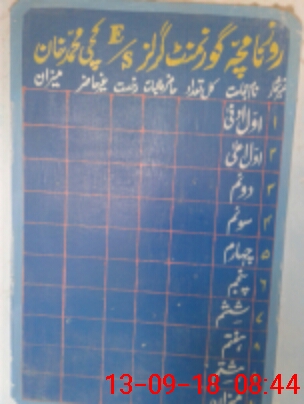 روزنامچہ گورنمنٹ گرلز E/S کچی محمد خان
نمبر شمار نام جماعت کل تعداد حاضر طالبات رخصت غیر حاضر میزان
۱ اول ادنیٰ
۲ اول اعلیٰ
۳ دوئم
۴ سوئم
۵ چہارم
۶ پنجم
۷ ششم
۸ ہفتم
13-09-18 08:44